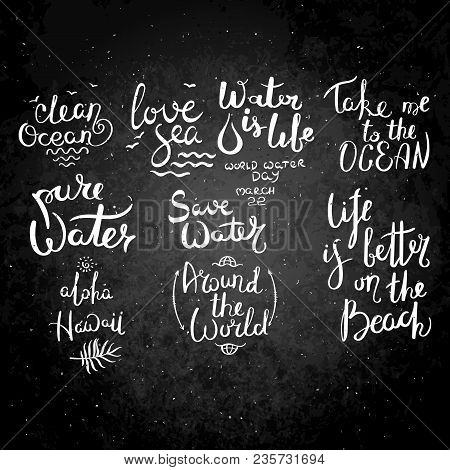 clean
Ocean
love
sea
Water
is life
WORLD WATER
DAY
MARCH
22
Take me
to the
OCEAN
pure
Water
Save
Water
Life
is better
on the
Beach
aloha
Hawaii
Around
the
World
Bigstock
Image ID: 235731694
bigstock.com